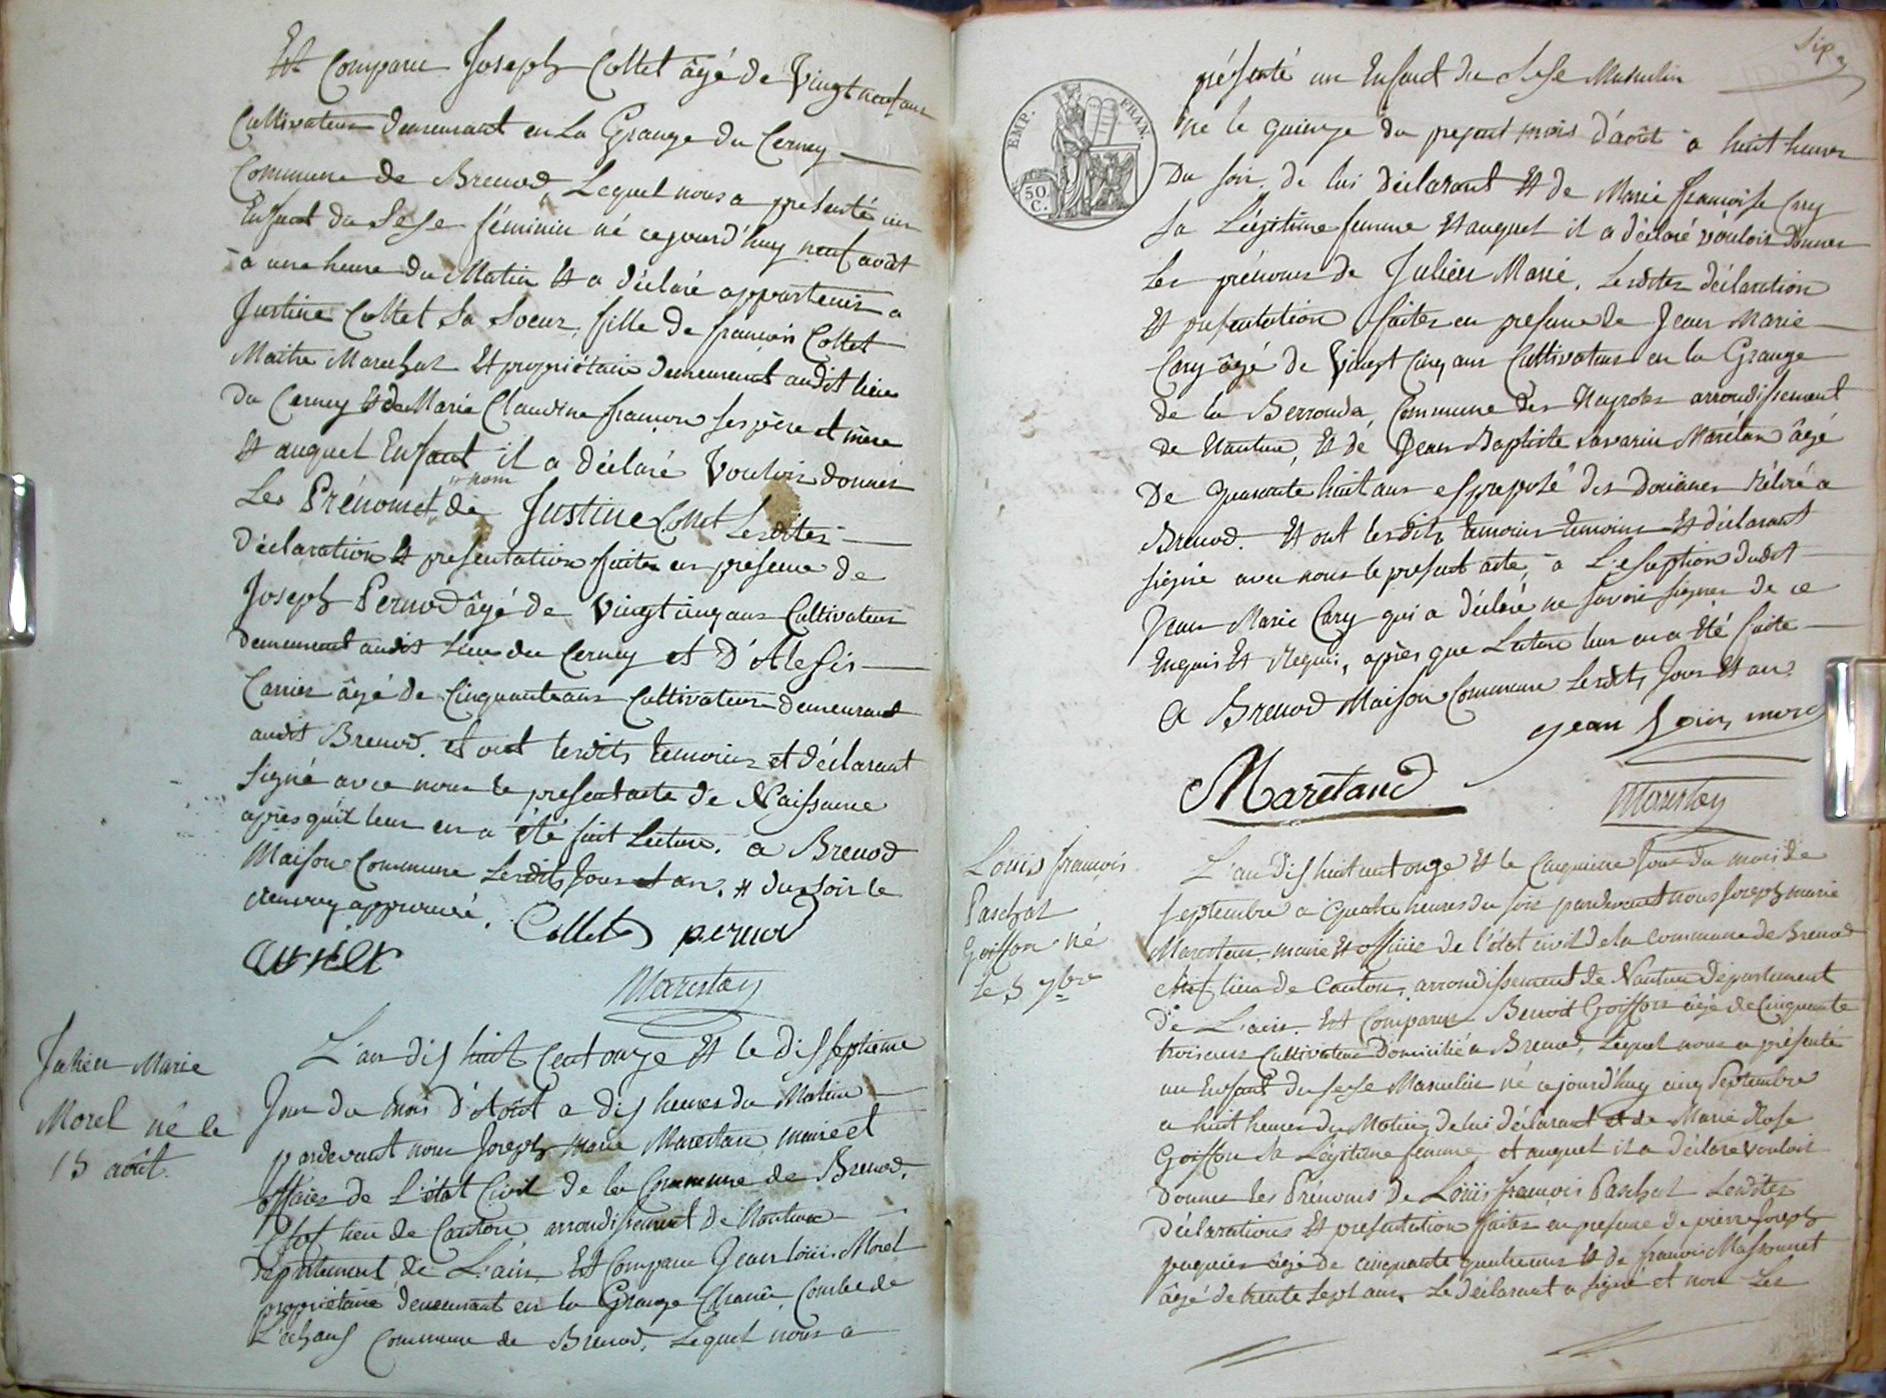 Est Comparu Joseph Collet âgé de Vingt neuf ans
Cultivateur demeurant en La Grange du Cerney
Commune de Brenod, Lequel nous a presenté un
Enfant du Sexe féminin né cejourd'huy neuf août
à une heure du Matin Et a déclaré appartenir a
Justine Collet Sa Soeur, fille de françois Collet
Maitre Marechal Et propriétaire demeurant audit lieu
Du Cerney Et de Marie Claudine françon ses père et mère
Et auquel Enfant il a déclaré Vouloir donner
Les Prénom et nom de Justine Collet Lesdites
Déclaration Et presentation faites en présence de
Joseph Pernod âgé de Vingt cinq ans Cultivateur
demeurant audit Lieu du Cerney et D'Alexis
Carrier âgé de Cinquante ans Cultivateur demeurant
audit Brenod. Et ont lesdits temoins et déclarant
Signé avec nous le present acte de Naissance
après qu'il leur en a été fait Lecture. à Brenod
Maison Commune Lesdits Jour et an. # du soir le
renvoy approuvé.
Collet pernod
Marestan
Julien Marie
Morel né le
15 août.
L'an dix huit Cent onze Et le dix Septieme
Jour du mois d'Août a dix heures du Matin
pardevant nous Joseph marie Marestan maire et
officier de L'état Civil de la Commune de Brenod,
Chef lieu de Canton, arrondissement de Nantua
département de L'ain, Est Comparu Jean Louis Morel
propriétaire demeurant en la Grange Combe de
Commune de Brenod, Lequel nous a
présenté un Enfant du Sexe Masculin
né le quinze du present mois d'août a huit heures
Du soir, de lui déclarant Et de Marie françoise Cary
Sa Légitime femme Et auquel il a déclaré vouloir donner
Les prénoms de Julien Marie. Lesdites déclaration
Et presentation faites en presence de Jean Marie
Cary âgé de Vingt Cinq ans Cultivateur en la Grange
de la Commune des Neyroles arrondissement
de Nantua, Et de Jean Baptiste savarin Marétan âgé
De quarante huit ans ex preposé des Douänes retiré a
Brenod. Et ont lesdits temoins temoins Et déclarant
signé avec nous le present acte, à L'exception dudit
Jean Marie Cary qui a déclaré ne savoir signer de ce
Enquis Et Requis, après que Lecture leur en a Eté faite
a Brenod Maison Commune Lesdits Jour Et an.
jean Loius morel
Maretand
Marestan
EMP. FRAN.
50 C.
Louis françois
Paschal
Goiffon né
le 5 7bre
L'an dix huit cent onze Et le Cinquieme Jour du mois de
septembre a quatre heures du soir pardevant nous Joseph marie
Marestan maire Et officier de l'état civil de la Commune de Brenod
Chef lieu de Canton, arrondissement de Nantua département
de L'ain. Est Comparu Benoit Goiffon âgé de Cinquante
trois ans Cultivateur Domicilié a Brenod, Lequel nous a présenté
un Enfant du sexe Masculin né cejourd'huy cinq Septembre
a huit heures du Matin, de lui déclarant et de Marie Rose
Goiffon Sa Légitime femme, et auquel il a déclaré vouloir
donner les Prénoms de Louis françois Paschal Lesdites
Déclarations Et presentation faites en presence de pierre Joseph
âgé de cinquante quatre ans Et de francois Massonnet
âgé de trente sept ans. Le déclarant a signé et non Les